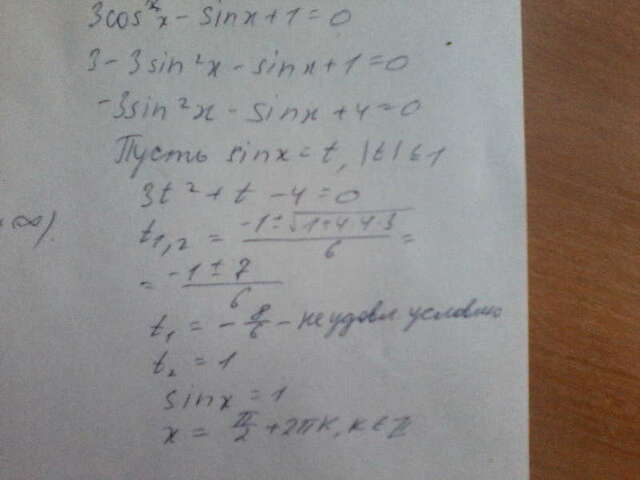 3cos²x - sinx + 1 = 0
3 - 3sin²x - sinx + 1 = 0
-3sin²x - sinx + 4 = 0
Пусть sinx = t, |t| ≤ 1
3t² + t - 4 = 0
∞).
t₁,₂ = (-1 ± √(1+4·4·3))/6 =
= (-1 ± 7)/6
t₁ = -8/6 - не удовл условию
t₂ = 1
sinx = 1
x = π/2 + 2πk, k ∈ Z